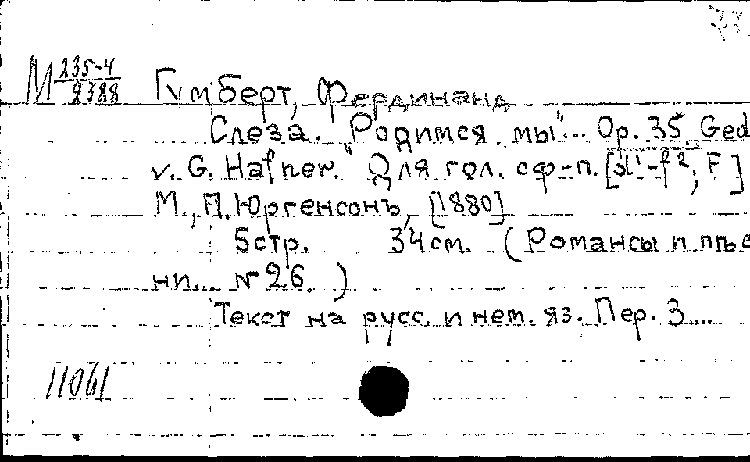 М 235-4/9388
Гумберт, Фердинанд
Слеза. "Родимся мы"... Op. 35 Ged
v. G. Hafner. Для гол. с ф-п. [d¹-f², F]
М., П. Юргенсонъ, [1880]
5 стр. 34 см. (Романсы и пѣс
ни... № 26.)
Текст на русс. и нем. яз. Пер. З...
11061